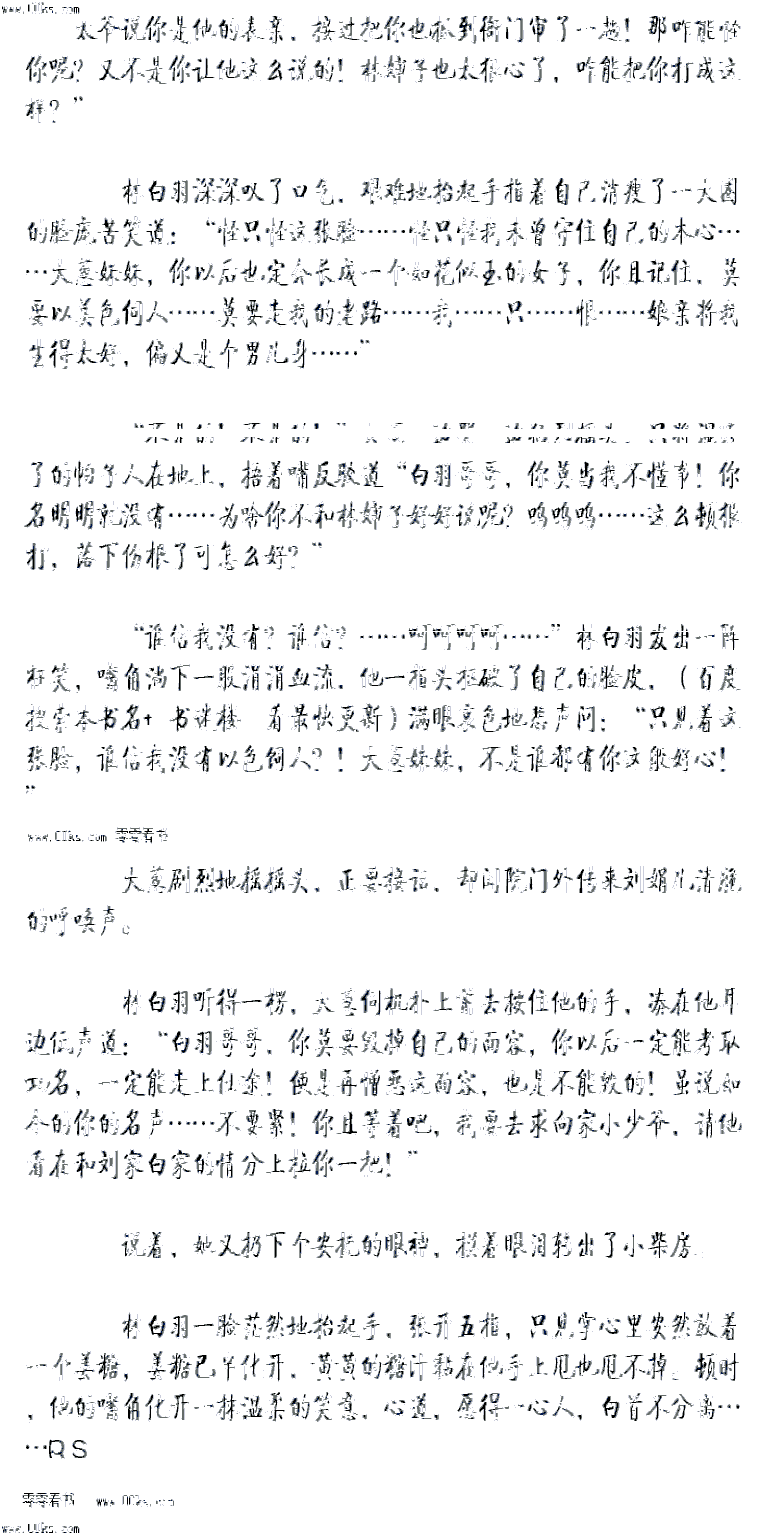 www.00ks.com
太爷说你是他的表亲，接过把你也抓到衙门审了一趟！那咋能怪
你呢？又不是你让他这么说的！林婶子也太狠心了，咋能把你打成这
样？”
林白羽深深叹了口气，艰难地抬起手指着自己消瘦了一大圈
的脸庞苦笑道：“怪只怪这张脸……怪只怪我未曾守住自己的本心…
…大葱妹妹，你以后也定会长成一个如花似玉的女子，你且记住，莫
要以美色伺人……莫要走我的老路……我……只……恨……娘亲将我
生得太好，偏又是个男儿身……”
“不是的！不是的！”
了的帕子人在地上，捂着嘴反驳道“白羽哥哥，你莫当我不懂事！你
名明明就没有……为啥你不和林婶子好好说呢？呜呜呜……这么顿狠
打，落下伤根了可怎么好？”
“谁信我没有？谁信？……呵呵呵呵……”林白羽发出一阵
狂笑，嘴角淌下一股涓涓血流，他一指头抠破了自己的脸皮，（百度
搜索本书名+ 书迷楼 看最快更新）满眼哀色地悲声问：“只见着这
张脸，谁信我没有以色伺人？！大葱妹妹，不是谁都有你这般好心！
”
www.00ks.com 零零看书
大葱剧烈地摇摇头，正要接话，却闻院门外传来刘娟儿清脆
的呼唤声。
林白羽听得一楞，大葱伺机扑上前去按住他的手，凑在他耳
边低声道：“白羽哥哥，你莫要毁掉自己的面容，你以后一定能考取
功名，一定能走上仕途！便是再憎恶这面容，也是不能毁的！虽说如
今的你的名声……不要紧！你且等着吧，我要去求向家小少爷，请他
看在和刘家白家的情分上拉你一把！”
说着，她又扔下个安抚的眼神，摸着眼泪转出了小柴房。
林白羽一脸茫然地抬起手，张开五指，只见掌心里安然放着
一个姜糖，姜糖已半化开，黄黄的糖汁黏在他手上甩也甩不掉。顿时
，他的嘴角化开一抹温柔的笑意，心道，愿得一心人，白首不分离…
…RS
零零看书 www.00ks.com
www.00ks.com